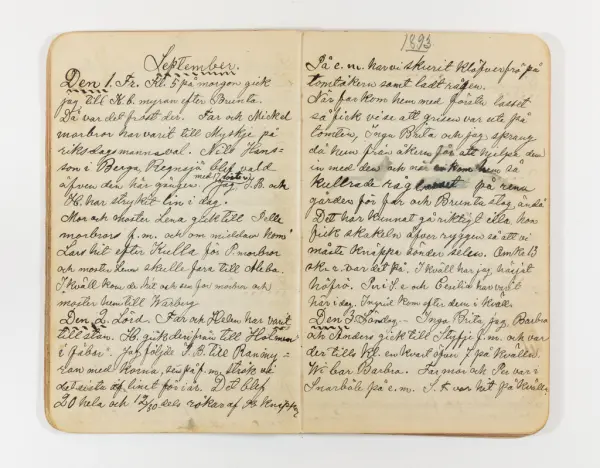 September.
Den 1. Fr. Kl. 5 på morgon gick
jag till K. b. myran efter Brunta.
Då var det frost der. Far och Mickel
morbror har varit till Myskje på
riksdagsmannaval. Nils Hans-
son i Berga, Regnsjö blef vald
äfven den här gången. Jag S. B. och
H. har strykit lin i dag.
Mor och moster Lena gick till Pelle
morbrors f. m. och om middan kom
Lars hit efter Kulla för P. morbror
och moster Lena skulle fara till Heba.
I kväll kom de hit och sen for morbror och
moster hem till Wärberg
Den 2. Lörd. Far och Helen har varit
till stan. H. gick derifrån till Holmen
i fäbor. Jag följde S. B. till Ranmy=
ran med korna, sen på f. m. strök vi
det sista af linet för i år. Det blef
20 hela och 12/20 dels rökar af
1893
På e. m. har vi skurit klöfverfrö på
tomtåkern samt ladt råfsen.
När far kom hem med första lasset
så fick vi se att grisen var ute på
tomten, Inga Brita och jag sprang
då hem från åkern för att hjelpa den
in med den och när
kullrade på rena
gården för far och Brunta slog, ändå
Det har kunnat gå riktigt illa hon
fick skakeln öfver ryggen så att vi
måste knäppa sönder selen. Om kl 3
e. m. var det på, I kväll har jag hässjat
höfrö. Per S. e och Cecilia har varit
här i dag, Ingrid kom efter dem i kväll.
Den 3. Söndag - Inga Brita, jag, Barbro
och Anders gick till Styfje f. m. och var
der tills kl. en kvart öfver 7 på kvällen.
Wi bar Barbro. Farmor och Per var i
Snarböle på e. m. S. K. var hit på kvälln.